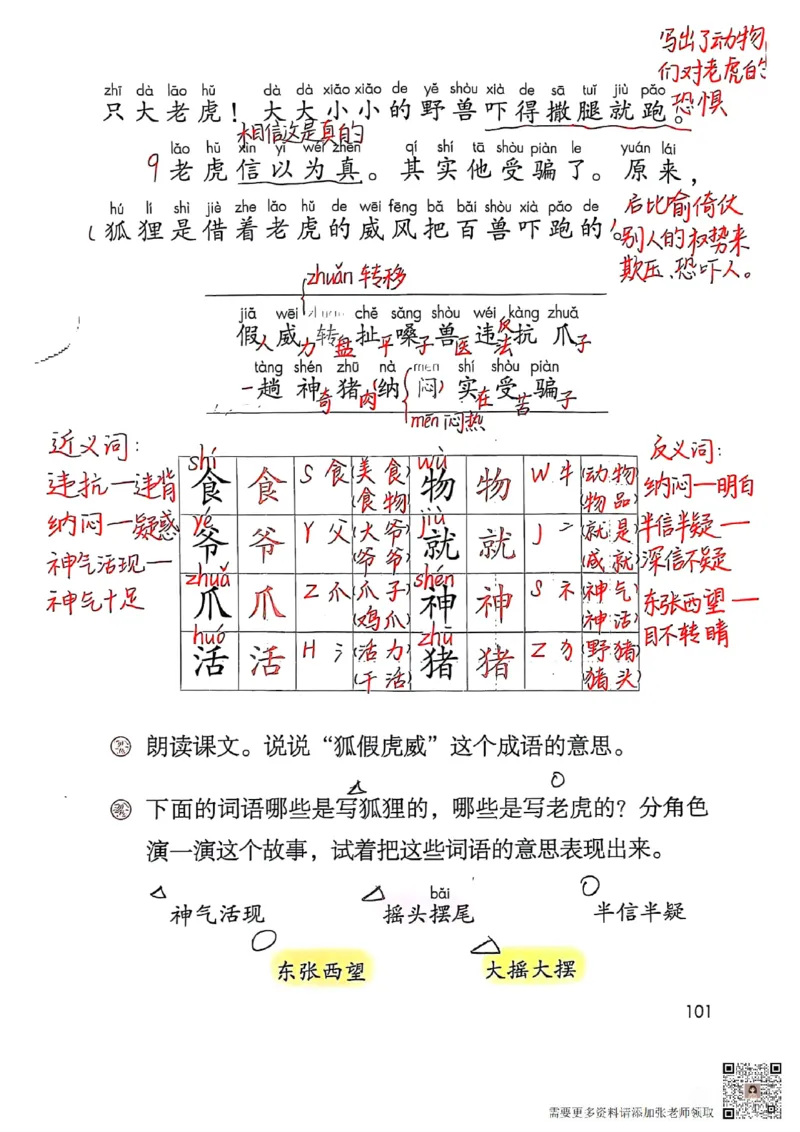 写出了动物
们对老虎的
恐惧
zhī dà lǎo hǔ dà dà xiǎo xiǎo de yě shòu xià de sā tuǐ jiù pǎo
只大老虎！大大小小的野兽吓得撒腿就跑。
相信这是真的
lǎo hǔ xìn yǐ wéi zhēn qí shí tā shòu piàn le yuán lái
9 老虎信以为真。其实他受骗了。原来，
hú li shì jiè zhe lǎo hǔ de wēi fēng bǎ bǎi shòu xià pǎo de
狐狸是借着老虎的威风把百兽吓跑的。
后比喻倚仗
别人的权势来
欺压、恐吓人。
zhuǎn 转移
jiǎ wēi zhuàn chě sǎng shòu wéi kàng zhuǎ
假人 威力 转盘 扯平 嗓子 兽医 违反法 抗 爪子
tàng shén zhū nà mèn shí shòu piàn
一趟 神奇 猪肉 (纳闷) 实在 受苦 骗子
mēn 闷热
近义词：
违抗—违背
纳闷—疑惑
神气活现—
神气十足
shí 食 食 S 食 (美食) (食物) wù 物 物 W 牜 (动物) (物品)
yé 爷 爷 Y 父 (大爷) (爷爷) jiù 就 就 J 亠 (就是) (成就)
zhuǎ 爪 爪 Z 爪 (爪子) (鸡爪) shén 神 神 S 礻 (神气) (神活)
huó 活 活 H 氵 (活力) (干活) zhū 猪 猪 Z 犭 (野猪) (猪头)
反义词：
纳闷—明白
半信半疑—
深信不疑
东张西望—
目不转睛
朗读课文。说说“狐假虎威”这个成语的意思。
下面的词语哪些是写狐狸的，哪些是写老虎的？分角色
演一演这个故事，试着把这些词语的意思表现出来。
bǎi
神气活现 摇头摆尾 半信半疑
东张西望 大摇大摆
101
需要更多资料请添加张老师领取